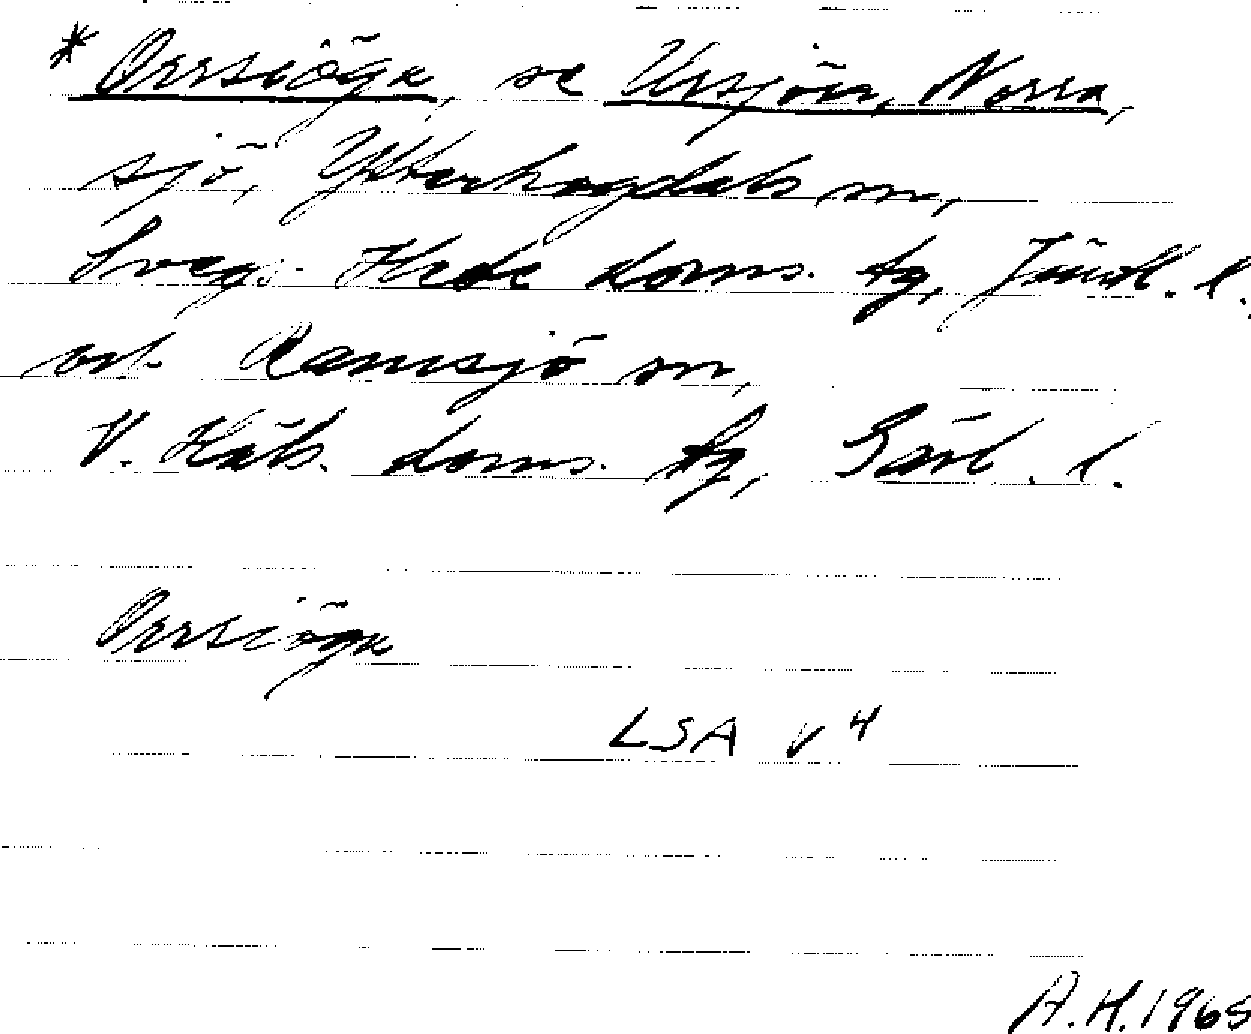 * Orrsiögn, se Ursjön, Norra,
sjö, Ytterhogdals sn,
Sveg.- Hede doms. tg, Jämtl. l.
och Ramsjö sn,
V. Häls. doms. tg, Gävl. l.
Orrsiögn
LSA v 4
A.H. 1965